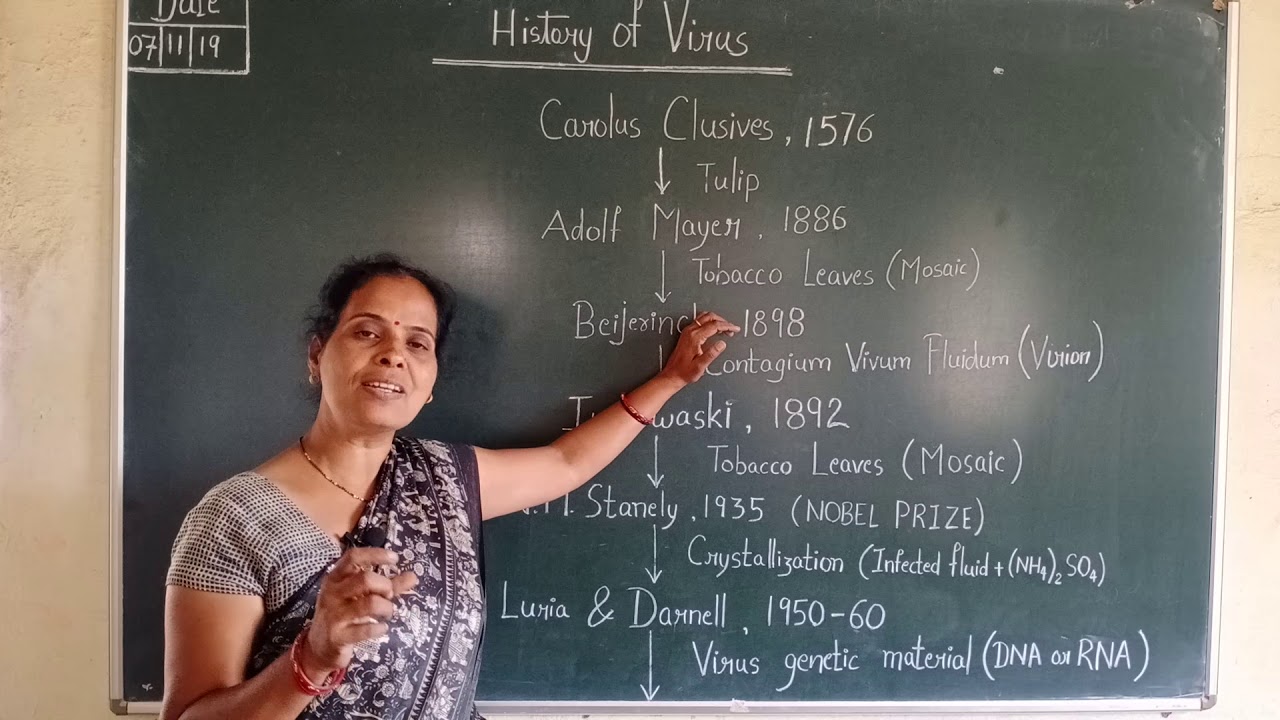 Date
07 11 19
History of Virus
Carolus Clusives, 1576
Tulip
Adolf Mayer, 1886
Tobacco Leaves (Mosaic)
1898
Contagium Vivum Fluidum (Virion)
1892
Tobacco Leaves (Mosaic)
Stanely, 1935 (NOBEL PRIZE)
Crystallization (Infected fluid + (NH₄)₂ SO₄)
Luria & Darnell, 1950-60
Virus genetic material (DNA or RNA)